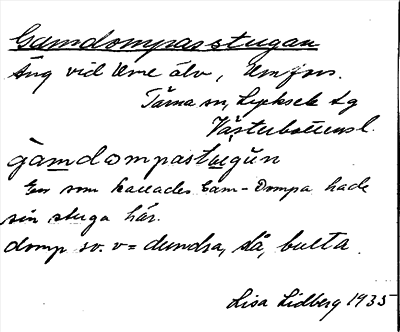 Gamdompasstugan
Äng vid Ume älv, Umfors.
Tärna sn, Lycksele lg
Västerbottensl.
gàmdωmpastu̲gŭn
En som kallades Gam-Dompa hade
sin stuga här.
domp sv. v = dundra, slå, bulta.
Lisa Lidberg 1935